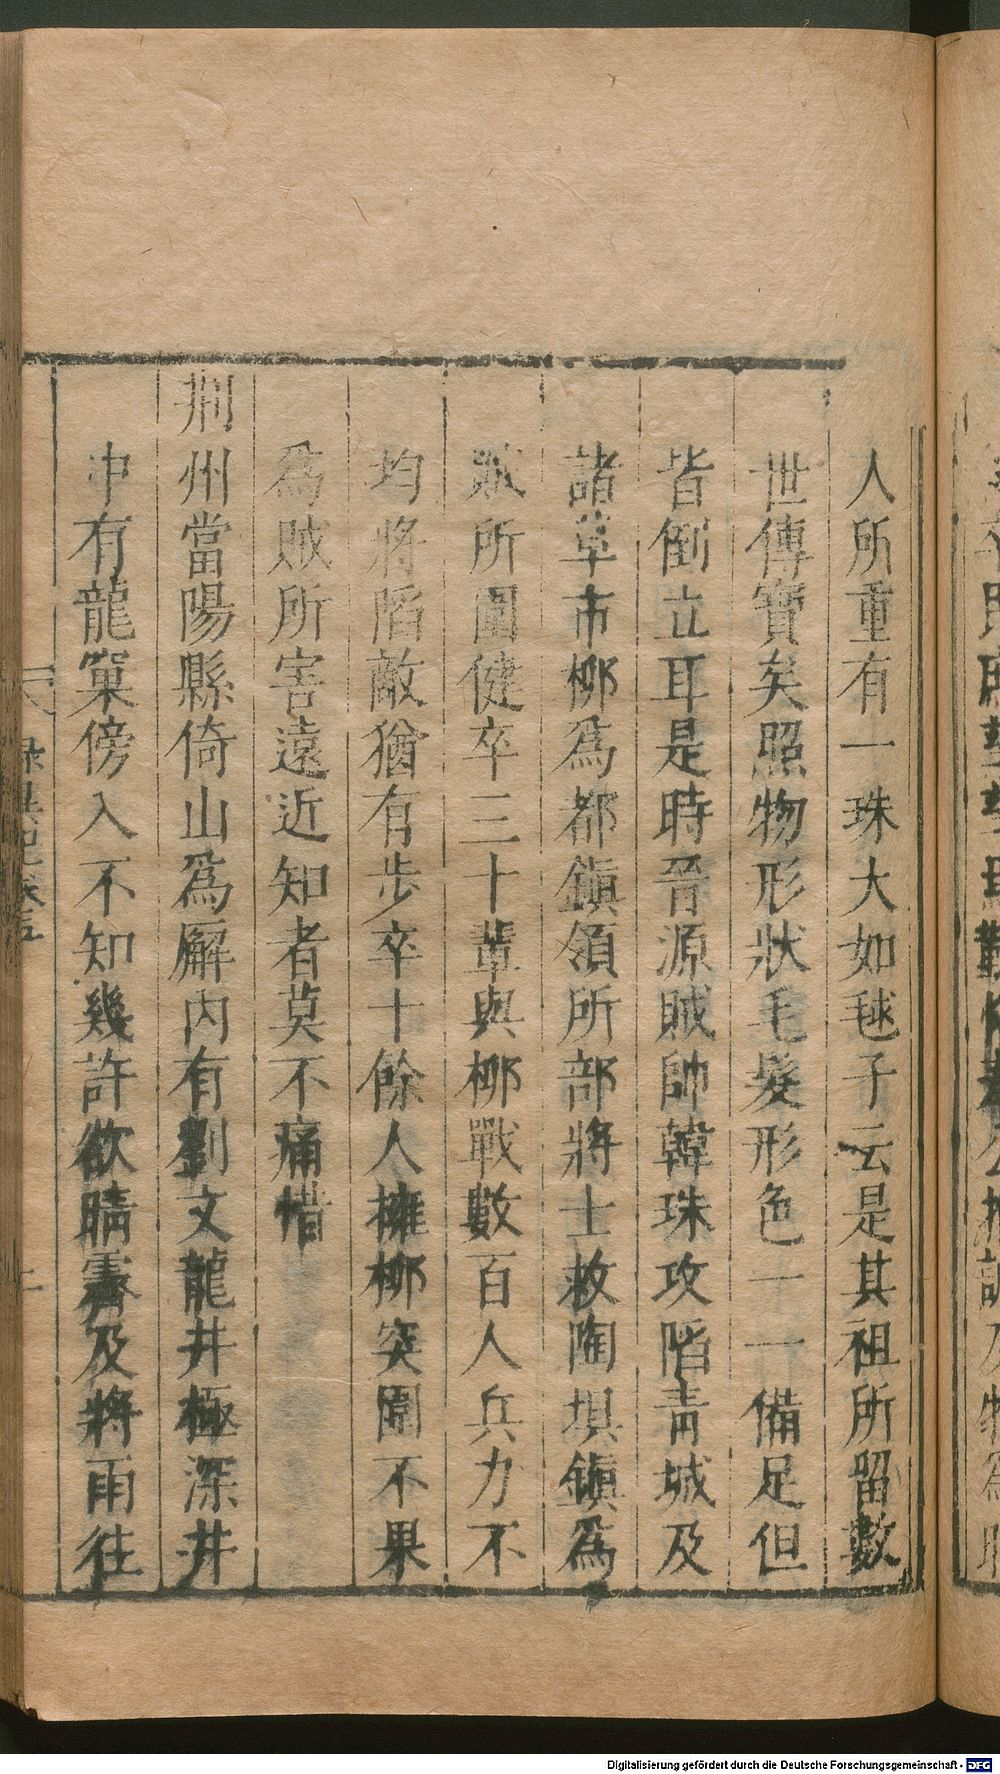 人所重有一珠大如毬子云是其祖所留數
世傳寶矣照物形狀毛髮形色一一備足但
皆倒立耳是時晉源賊帥韓珠攻陷靑城及
諸草市柳爲都鎮領所部將士救陶垻鎮爲
賊所圍健卒三十輩與柳戰數百人兵力不
均將陷敵猶有步卒十餘人擁柳突圍不果
爲賊所害遠近知者莫不痛惜
荆州當陽縣倚山爲廨內有劉文龍井極深井
中有龍窠傍入不知幾許欲晴霽及將雨往
錄異記卷五
Digitalisierung gefördert durch die Deutsche Forschungsgemeinschaft - DFG